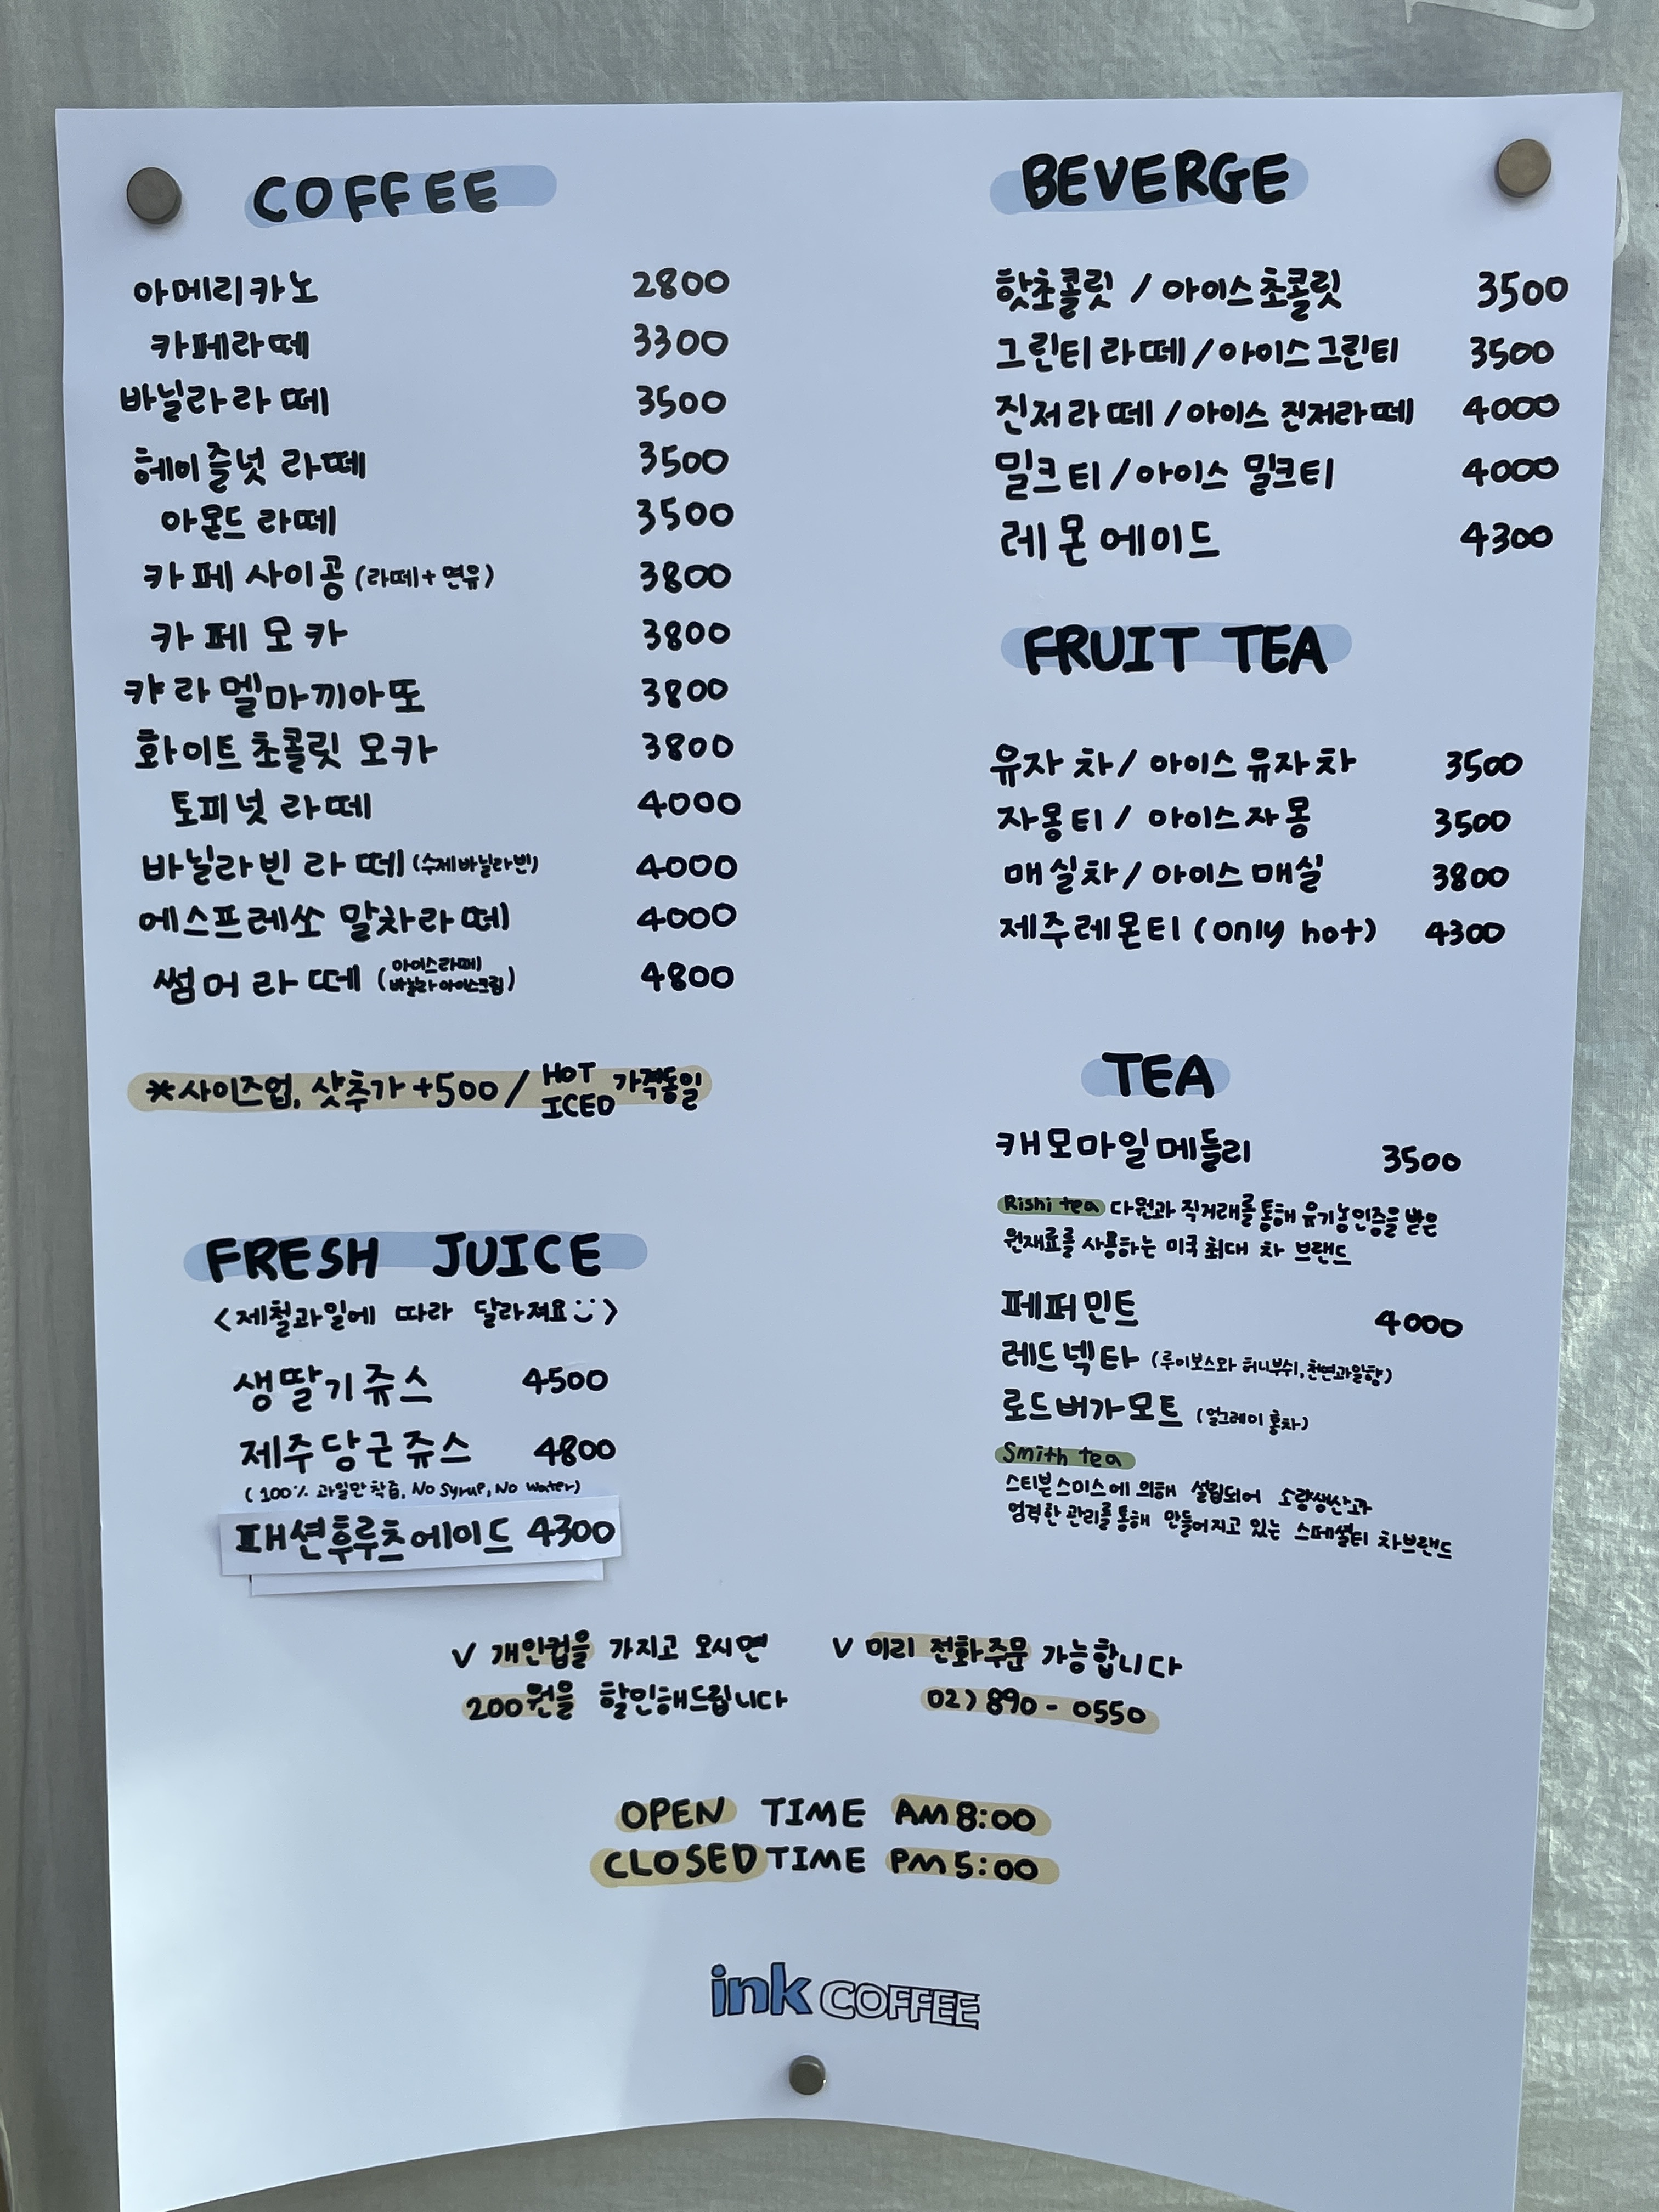 COFFEE
아메리카노 2800
카페라떼 3300
바닐라라떼 3500
헤이즐넛 라떼 3500
아몬드 라떼 3500
카페 사이공 (라떼+연유) 3800
카페모카 3800
캬라멜마끼아또 3800
화이트 초콜릿 모카 3800
토피넛 라떼 4000
바닐라빈 라떼 (수제바닐라빈) 4000
에스프레쏘 말차라떼 4000
썸머라떼 (아이스라떼/바닐라아이스크림) 4800
*사이즈업, 샷추가 +500 / HOT ICED 가격동일
FRESH JUICE
<제철과일에 따라 달라져요 :)>
생딸기쥬스 4500
제주당근쥬스 4800
(100% 과일만 착즙, No Syrup, No Water)
패션후루츠에이드 4300
BEVERGE
핫초콜릿 / 아이스초콜릿 3500
그린티라떼 / 아이스그린티 3500
진저라떼 / 아이스 진저라떼 4000
밀크티 / 아이스 밀크티 4000
레몬에이드 4300
FRUIT TEA
유자차 / 아이스 유자차 3500
자몽티 / 아이스자몽 3500
매실차 / 아이스매실 3800
제주레몬티 (only hot) 4300
TEA
캐모마일메들리 3500
Rishi tea 다원과 직거래를 통해 유기농인증을 받은
원재료를 사용하는 미국 최대 차 브랜드
페퍼민트 4000
레드넥타 (루이보스와 허니부쉬, 천연과일향)
로드버가모트 (얼그레이 홍차)
Smith tea
스티븐스미스에 의해 설립되어 소량생산과
엄격한 관리를 통해 만들어지고 있는 스페셜티 차브랜드
V 개인컵을 가지고 오시면
200원을 할인해드립니다
V 미리 전화주문 가능합니다
02) 890 - 0550
OPEN TIME AM 8:00
CLOSED TIME PM 5:00
ink COFFEE